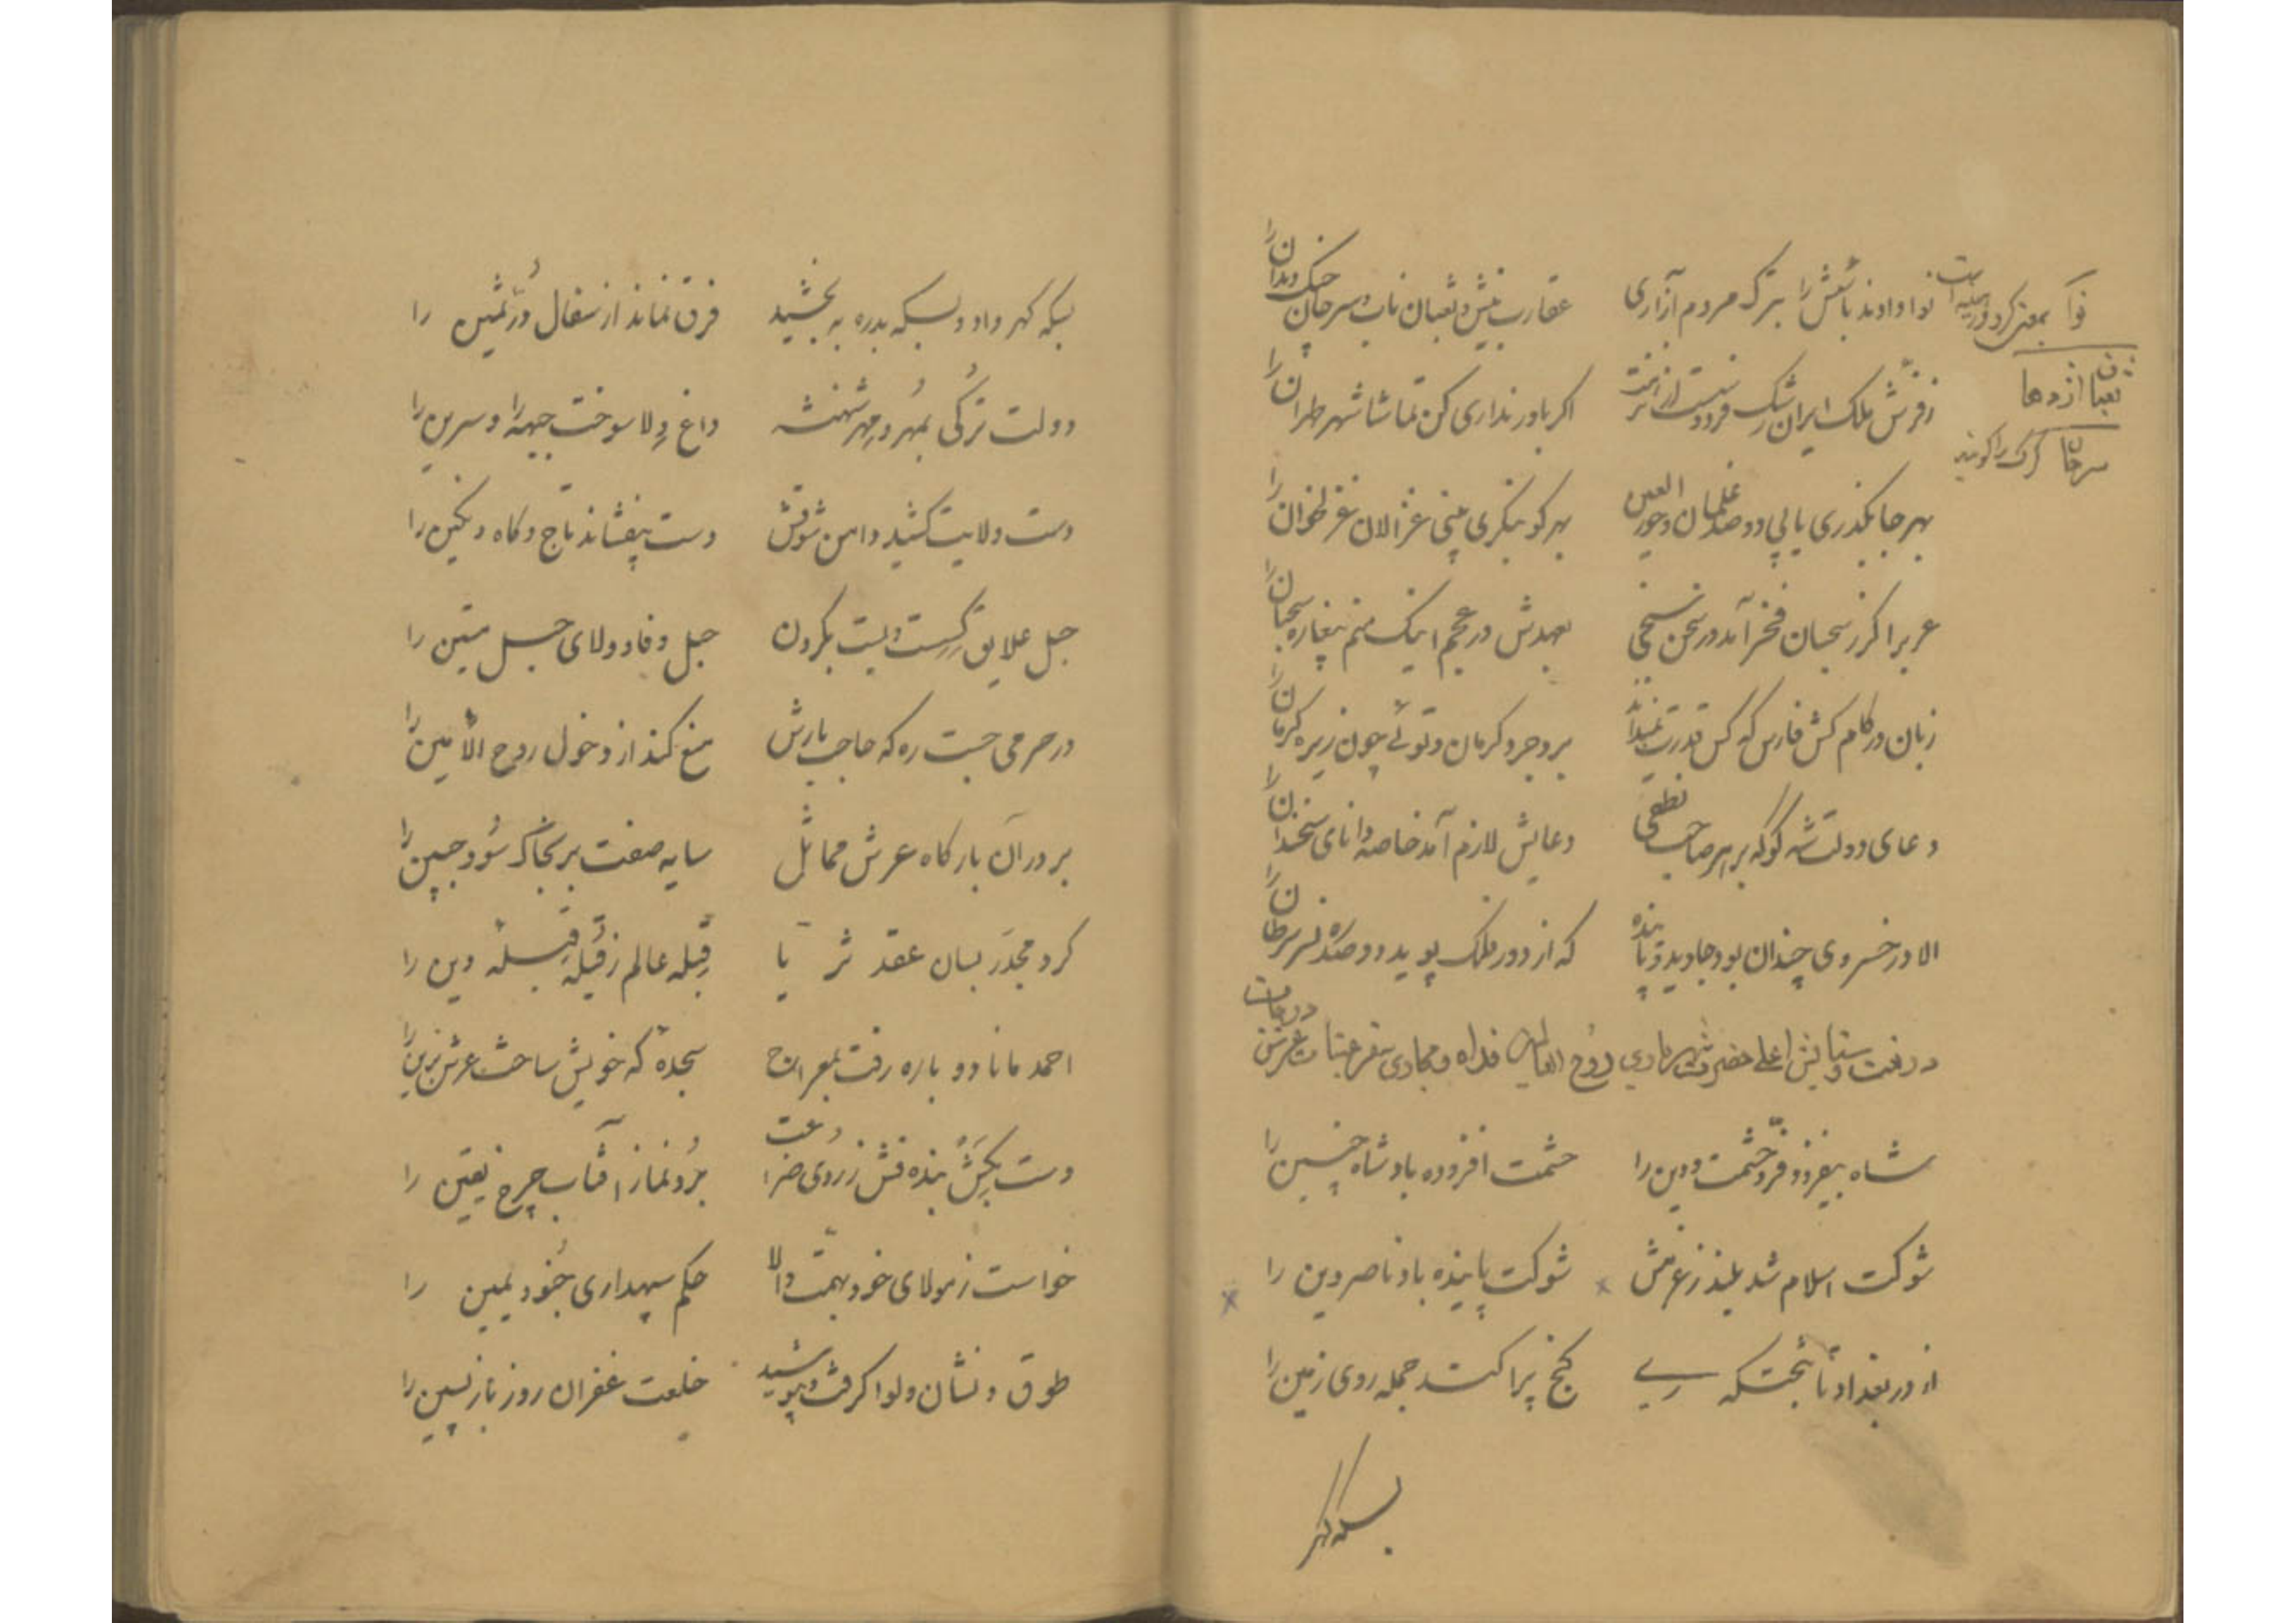 نوا بمعنی کرو و رهینه است
ثعبان اژدها
سرحان گرگ را گویند
نوا دادند بأسش را بترک مردم آزاری عقارب نیش و ثعبان ناب و سرحان چنگ و دندان را
ز فرّش ملک ایران رشک فردوست از نزهت اکر باور نداری کن تماشا شهر طهران را
بهر جا بکذری یابی دو صد غلمان و حور العین بهر کو بنکری بینی غزالان غزلخوان را
عرب را کر ز سحبان فخر آمد در سخن سنجی بعهدش در عجم اینک منم پیغاره سحبان را
زبان در کام کش فارس که کس قدرت بروجرد کرمان و توئی چون زیره کرمان را
دعای دولت شه کو که بر هر صاحب نطقی دعایش لازم آمد خاصه دانای سخندان را
الا در خسروی چندان بود جاوید و پاینده که از دور فلک پوید دو صد ره نسر سرطان را
در نعت و ستایش اعلی حضرت شهریاری روح العالمین فداه و
شاه بیفزود فرّ و حشمت دین را حشمت افزوده باد شاه چنین را
شوکت اسلام شد بلند ز عزمش شوکت پاینده باد ناصر دین را
از در بغداد تا بتختکه ری کنج پراکند جمله روی زمین را
بسکه کهر
بسکه کهر داد و بسکه بدره به بخشید فرق نماند از سفال دُرّ ثمین را
دولت ترکی بمُهر و مِهر شهنشه داغ ولا سوخت جبهه را و سرین را
دست ولایت کشید دامن شوقش دست بیفشاند تاج و کاه و نکین را
حبل علایق کسست و بست بکردن حبل وفا و ولای حبل متین را
در حرمی جست ره که حاجب بارش منع کند از دخول روح الأمین را
بر در آن بارکاه عرش مماثل سایه صفت بر بخاک سود جبین را
کرد مجدّر بسان عقد ثریا قبله عالم ز قُبله قبله دین را
احمد مانا دوباره رفت بمعراج سجده که خویش ساخت عرش برین را
دست بکش بنده فش ز روی ضراعت برد نماز آفتاب چرخ یقین را
خواست ز مولای خود بهمت والا حکم سپهداری جنود یمین را
طوق و نشان و لوا کرفت و بپوشید خلعت غفران روز بازپسین را